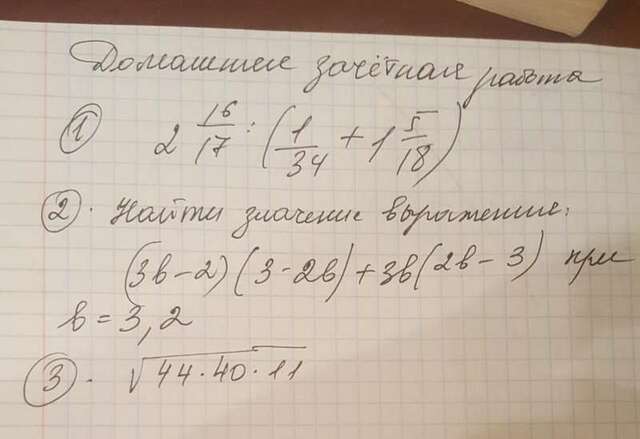 Домашнее зачётная работа
① 2 16/17 : (1/34 + 1 5/18)
②. Найти значение выражение:
(3b-2)(3-2b)+3b(2b-3) при
b = 3,2
③. √44·40·11